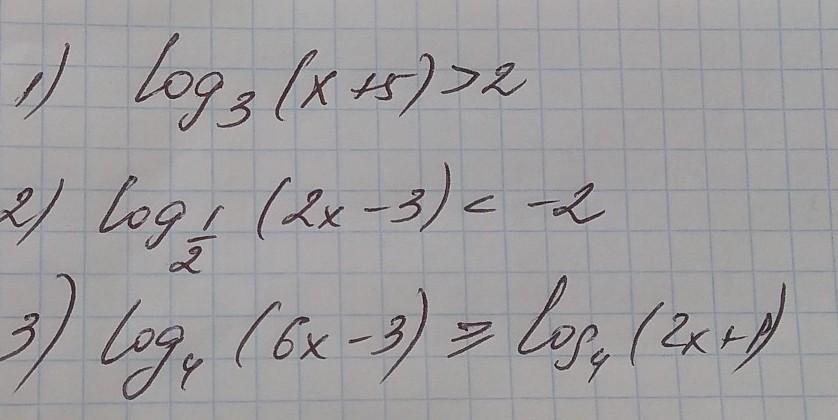 1) log₃ (x+5) > 2
2) log_{1/2} (2x-3) < -2
3) log₄ (6x-3) ≥ log₄ (2x+1)